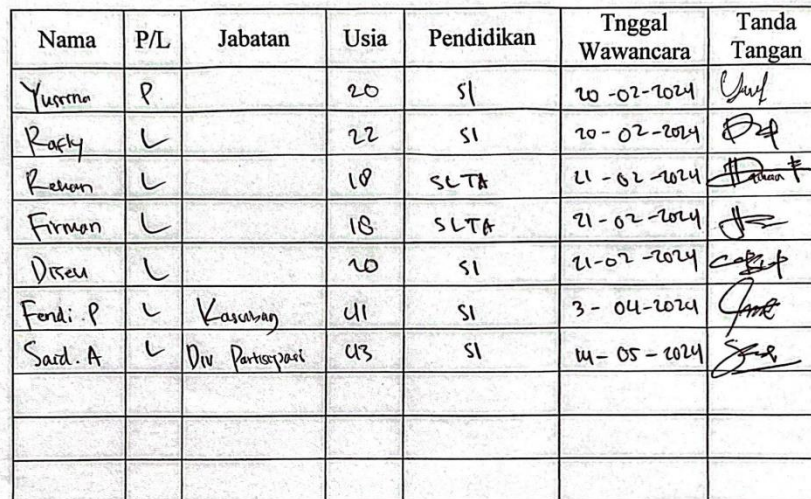 Nama P/L Jabatan Usia Pendidikan Tnggal Wawancara Tanda Tangan
Yusrina P 20 S1 20-02-2024
Rafky L 22 S1 20-02-2024
Rehan L 18 SLTA 21-02-2024
Firman L 18 SLTA 21-02-2024
L 20 S1 21-02-2024
Fendi. P L Kasubag 41 S1 3-04-2024
Said. A L Div Partisipasi 43 S1 14-05-2024